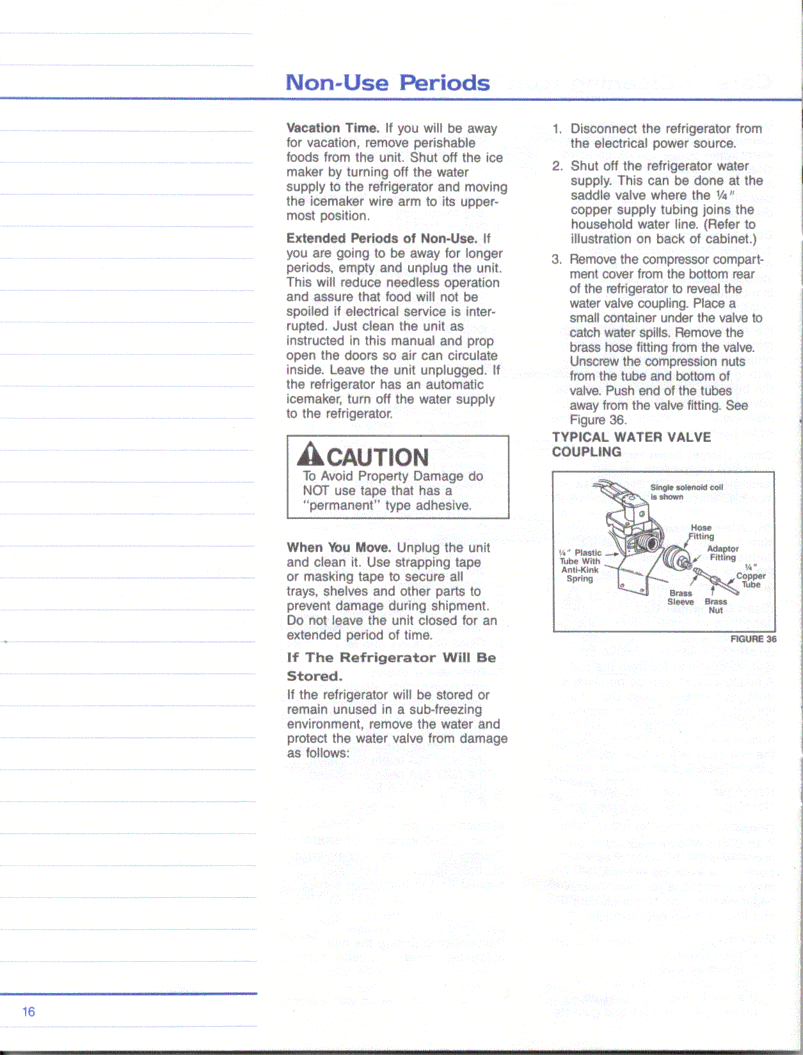 Non-Use Periods
Vacation Time. If you will be away
for vacation, remove perishable
foods from the unit. Shut off the ice
maker by turning off the water
supply to the refrigerator and moving
the icemaker wire arm to its upper-
most position.
Extended Periods of Non-Use. If
you are going to be away for longer
periods, empty and unplug the unit.
This will reduce needless operation
and assure that food will not be
spoiled if electrical service is inter-
rupted. Just clean the unit as
instructed in this manual and prop
open the doors so air can circulate
inside. Leave the unit unplugged. If
the refrigerator has an automatic
icemaker, turn off the water supply
to the refrigerator.
CAUTION
To Avoid Property Damage do
NOT use tape that has a
"permanent" type adhesive.
When You Move. Unplug the unit
and clean it. Use strapping tape
or masking tape to secure all
trays, shelves and other parts to
prevent damage during shipment.
Do not leave the unit closed for an
extended period of time.
If The Refrigerator Will Be
Stored.
If the refrigerator will be stored or
remain unused in a sub-freezing
environment, remove the water and
protect the water valve from damage
as follows:
1. Disconnect the refrigerator from
the electrical power source.
2. Shut off the refrigerator water
supply. This can be done at the
saddle valve where the ¼"
copper supply tubing joins the
household water line. (Refer to
illustration on back of cabinet.)
3. Remove the compressor compart-
ment cover from the bottom rear
of the refrigerator to reveal the
water valve coupling. Place a
small container under the valve to
catch water spills. Remove the
brass hose fitting from the valve.
Unscrew the compression nuts
from the tube and bottom of
valve. Push end of the tubes
away from the valve fitting. See
Figure 36.
TYPICAL WATER VALVE
COUPLING
Single solenoid coil
is shown
Hose
Fitting
Adaptor
Fitting
¼"
Copper
Tube
¼" Plastic
Tube With
Anti-Kink
Spring
Brass
Sleeve
Brass
Nut
FIGURE 36
16